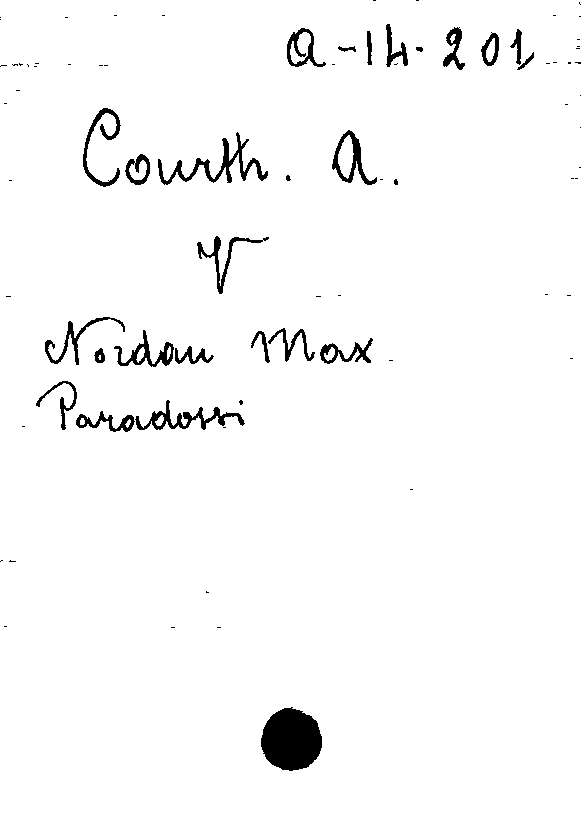 A-14-201
Courth. A.
V
Nordau Max
Paradossi